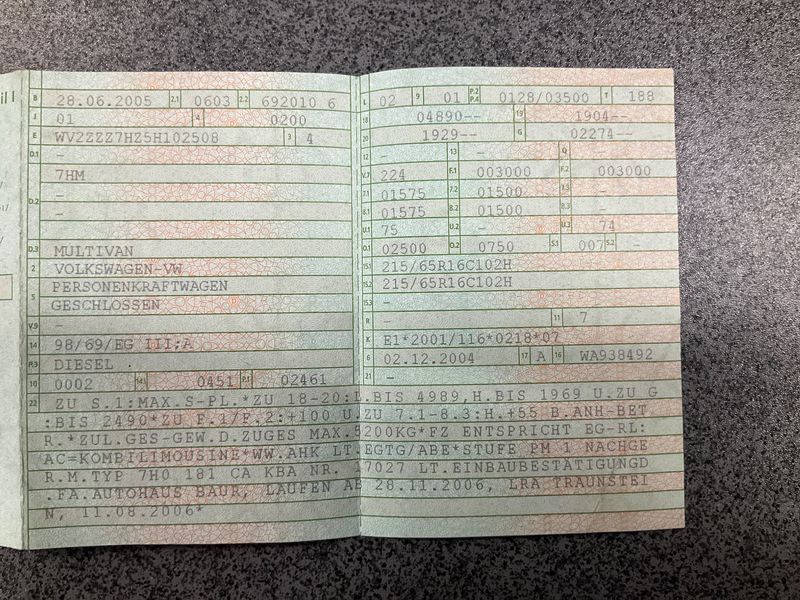 B 28.06.2005 2.1 0603 2.2 692010 6
J 01 4 0200
E WV2ZZZ7HZ5H102508 3 4
D.1 -
7HM
-
D.2 -
D.3 MULTIVAN
2 VOLKSWAGEN-VW
PERSONENKRAFTWAGEN
5 GESCHLOSSEN
V.9 -
14 98/69/EG III;A
P.3 DIESEL
10 0002 14.1 0451 P.1 02461
L 02 9 01 P.2 P.4 0128/03500 T 188
18 04890-- 19 1904--
20 1929-- G 02274--
12 - 13 - Q -
V.7 224 F.1 003000 F.2 003000
7.1 01575 7.2 01500 7.3 -
8.1 01575 8.2 01500 8.3 -
U.1 75 U.2 - U.3 74
O.1 02500 O.2 0750 S.1 007 S.2 -
15.1 215/65R16C102H
15.2 215/65R16C102H
15.3 -
R - 11 7
K E1*2001/116*0218*07
6 02.12.2004 17 A 16 WA938492
21 -
22 ZU S.1:MAX.S-PL.*ZU 18-20:L.BIS 4989,H.BIS 1969 U.ZU G
:BIS 2490*ZU F.1/F.2:+100 U.ZU 7.1-8.3:H.+55 B.ANH-BET
R.*ZUL.GES-GEW.D.ZUGES MAX.5200KG*FZ ENTSPRICHT EG-RL:
AC=KOMBILIMOUSINE*WW.AHK LT.EGTG/ABE*STUFE PM 1 NACHGE
R.M.TYP 7H0 181 CA KBA NR. 17027 LT.EINBAUBESTÄTIGUNGD
.FA.AUTOHAUS BAUR, LAUFEN AB 28.11.2006, LRA TRAUNSTEI
N, 11.08.2006*